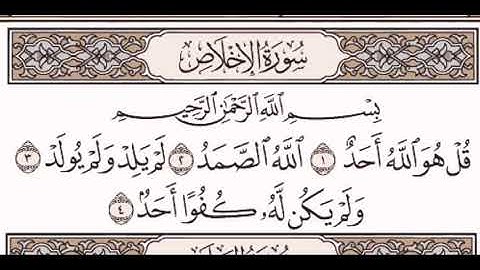 سُورَةُ الإِخْلَاصِ
بِسْمِ اللَّهِ الرَّحْمَٰنِ الرَّحِيمِ
قُلْ هُوَ اللَّهُ أَحَدٌ ١ اللَّهُ الصَّمَدُ ٢ لَمْ يَلِدْ وَلَمْ يُولَدْ ٣
وَلَمْ يَكُن لَّهُۥ كُفُوًا أَحَدٌۢ ٤